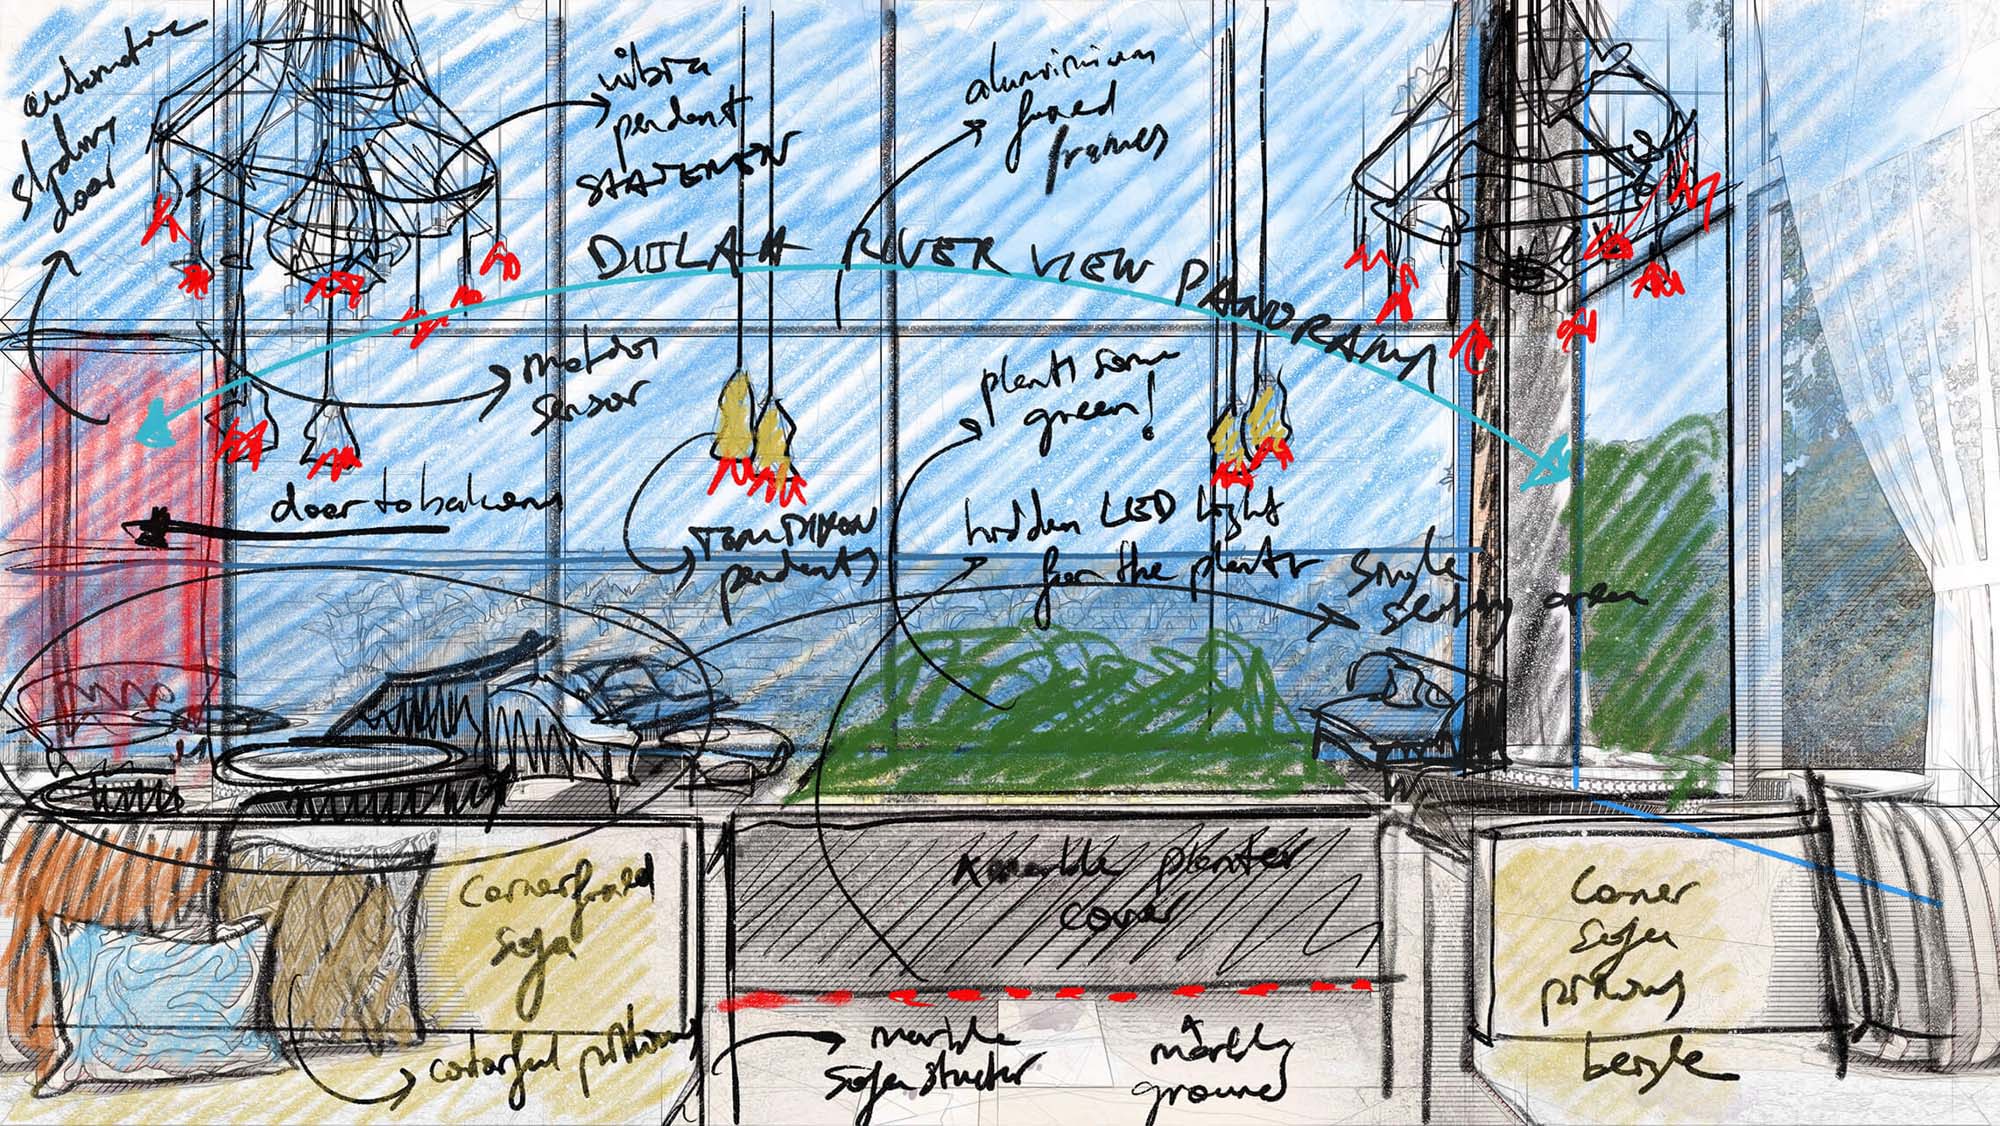 automatic
sliding
door
vibra
pendant
STATEMEN
aluminium
fixed
frames
DIJLAH RIVER VIEW PANORAMA
motion
sensor
plants some
green!
door to balcony
TOM DIXON
pendants
hidden LED light
for the plants
single
seating area
cornerfixed
sofa
marble planter
cover
corner
sofa
beigle
colorful
marble
sofa structer
marble
ground